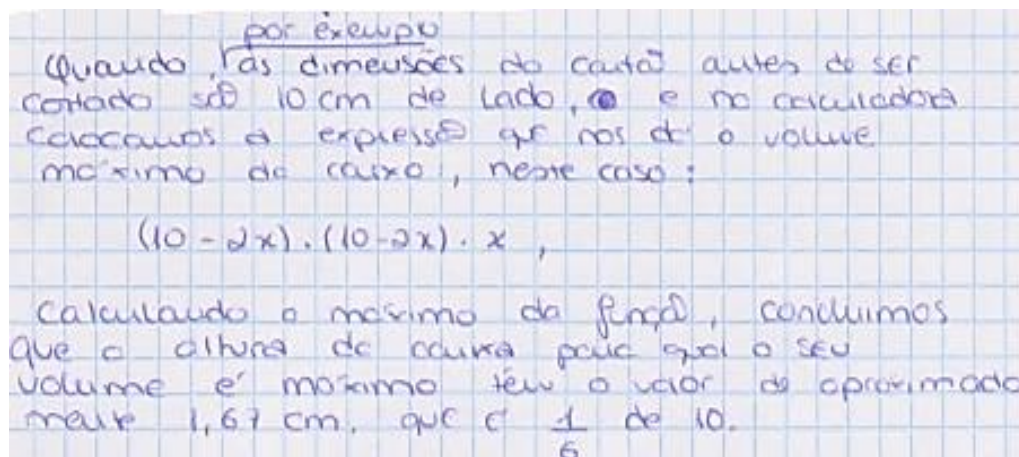 por exemplo
Quando, as dimensões do cartão antes de ser
cortado são 10 cm de lado, e na calculadora
colocamos a expressão que nos dá o volume
máximo da caixa, neste caso:
(10 - 2x) . (10 - 2x) . x ,
Calculando o máximo da função, concluimos
que a altura da caixa para qual o seu
volume é máximo têm o valor de aproximada
mente 1,67 cm. que é 1/6 de 10.